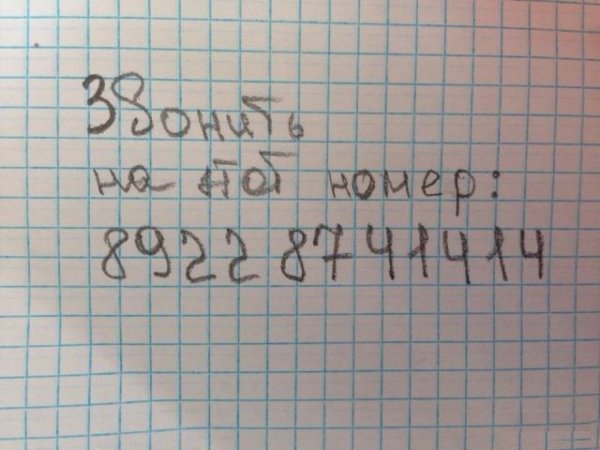 Звонить
на тот номер:
8922 8741414